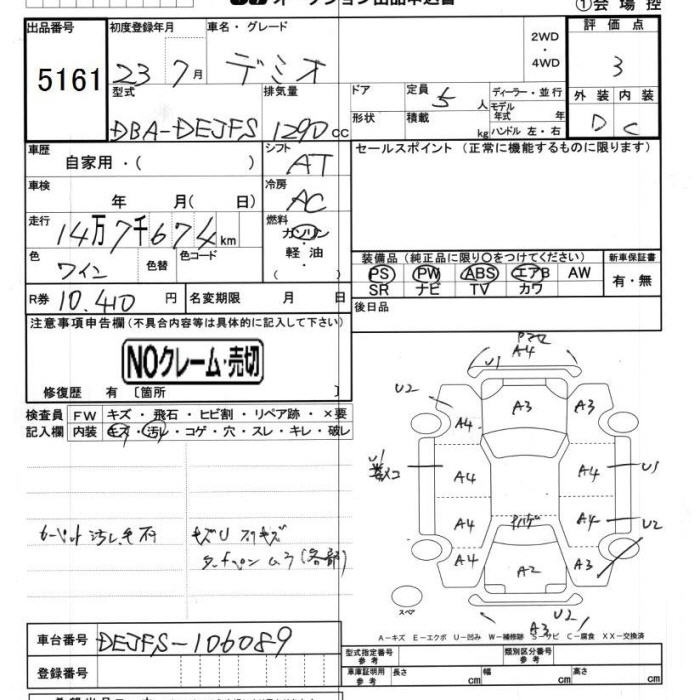 オークション出品申込書
①会場控
出品番号 初度登録年月 車名・グレード 評価点
5161 23 7月 デミオ 2WD・4WD 3
型式 排気量 ドア 定員 5人 ディーラー・並行 外装 内装
DBA-DEJFS 1290cc 形状 積載 kg モデル年式 年 ハンドル 左・右 D C
車歴 シフト セールスポイント (正常に機能するものに限ります)
自家用・( ) AT
車検 冷房
年 月( 日) AC
走行 燃料
14万7千674km ガソリン
色 色替 色コード 軽油 装備品 (純正品に限り○をつけてください) 新車保証書
ワイン ( ) PS PW ABS エアB AW 有・無
SR ナビ TV カワ
R券 10,410円 名変期限 月 日 後日品
注意事項申告欄(不具合内容等は具体的に記入して下さい)
NOクレーム・売切
修復歴 有 [箇所 ]
検査員 FW キズ・飛石・ヒビ割・リペア跡・×要
記入欄 内装 キズ・汚れ・コゲ・穴・スレ・キレ・破レ
A4
U1
U2 A3 A3
A4
U1 A4 A4 U1
A4 A4 U2
A4 A2 A3
スペア U2
A3
カーペット汚れ
キズU
A-キズ E-エクボ U-凹み W-補修跡 S-サビ C-腐食 XX-交換済
車台番号 DEJFS-106089
型式指定番号 参考 類別区分番号 参考
登録番号 車庫証明用 参考 長さ cm 幅 cm 高さ cm